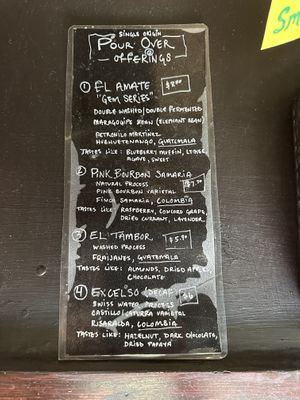 SINGLE ORIGIN
POUR OVER
OFFERINGS
① EL AMATE $8.00
"GEM SERIES"
DOUBLE WASHED/DOUBLE FERMENTED
MARAGOGIPE BEAN (ELEPHANT BEAN)
PETRONILO MARTINEZ
HUEHUETENANGO, GUATEMALA
TASTES LIKE: BLUEBERRY MUFFIN, LYCHEE
AGAVE, SWEET
② PINK BOURBON SAMARIA
NATURAL PROCESS
PINK BOURBON VARIETAL
FINCA SAMARIA, COLOMBIA
TASTES LIKE: RASPBERRY, CONCORD GRAPE,
DRIED CURRANT, LAVENDER
③ EL TAMBOR $5.50
WASHED PROCESS
FRAIJANES, GUATEMALA
TASTES LIKE: ALMONDS, DRIED APPLES,
CHOCOLATE
④ EXCELSO (DECAF) $6
SWISS WATER PROCESS
CASTILLO/CATURRA VARIETAL
RISARALDA, COLOMBIA
TASTES LIKE: HAZELNUT, DARK CHOCOLATE,
DRIED PAPAYA
Sm